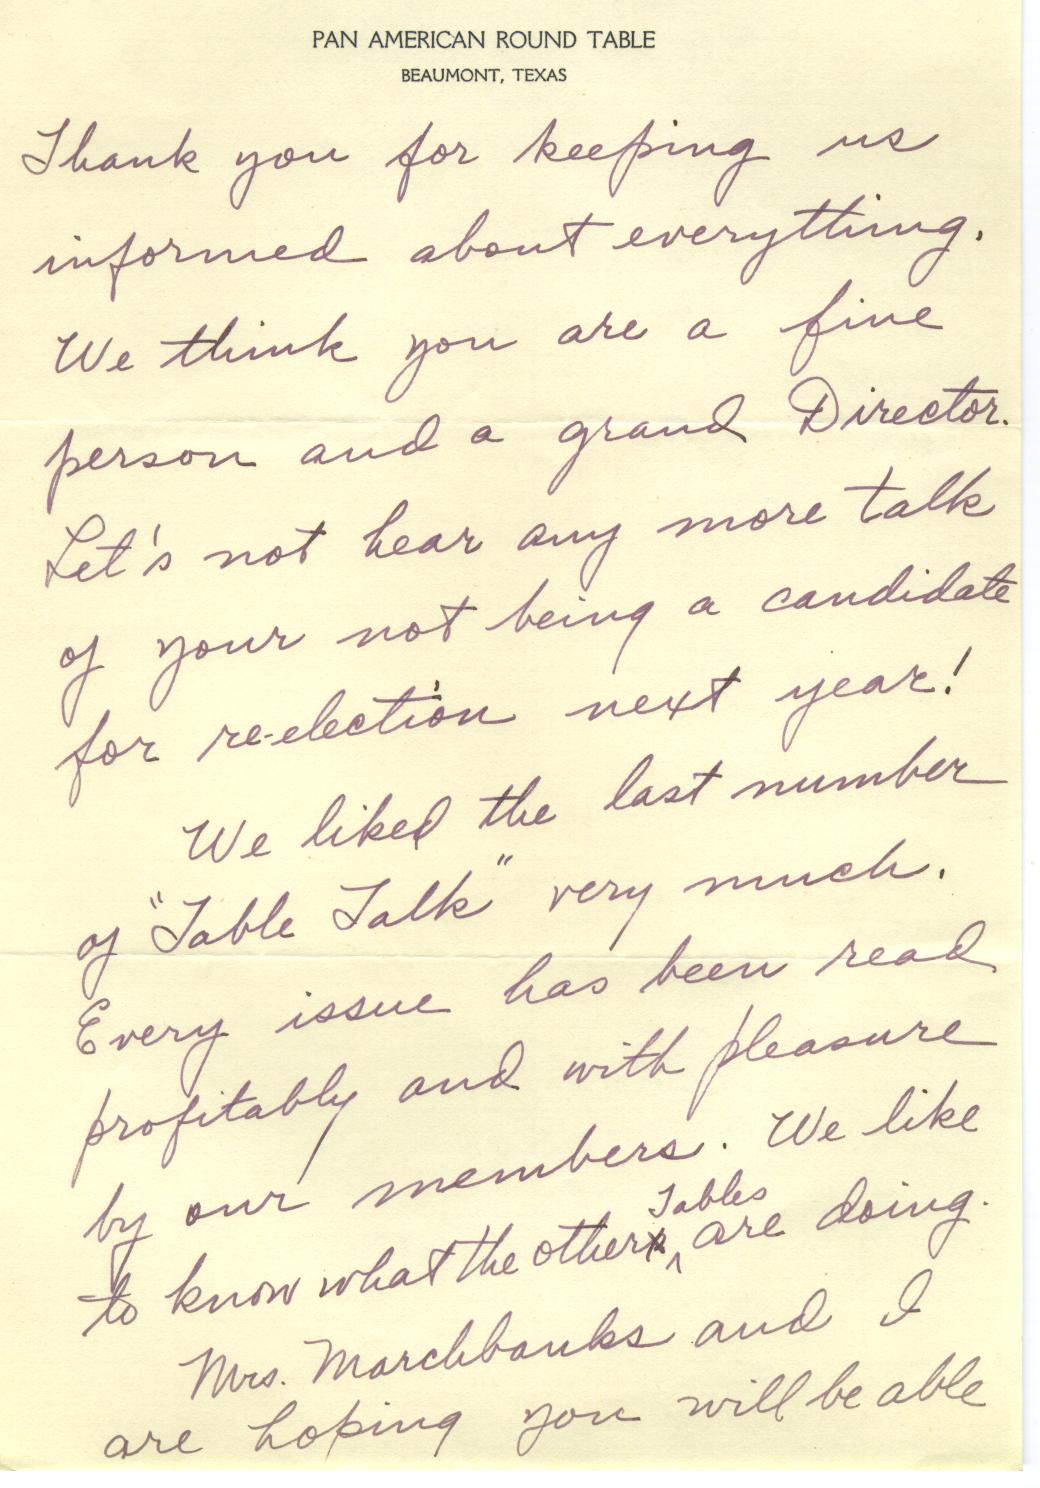 PAN AMERICAN ROUND TABLE
BEAUMONT, TEXAS
Thank you for keeping us
informed about everything.
We think you are a fine
person and a grand Director.
Let's not hear any more talk
of your not being a candidate
for re-election next year!
We liked the last number
of "Table Talk" very much.
Every issue has been read
profitably and with pleasure
by our members. We like
to know what the other Tables are doing.
Mrs. Marchbanks and I
are hoping you will be able